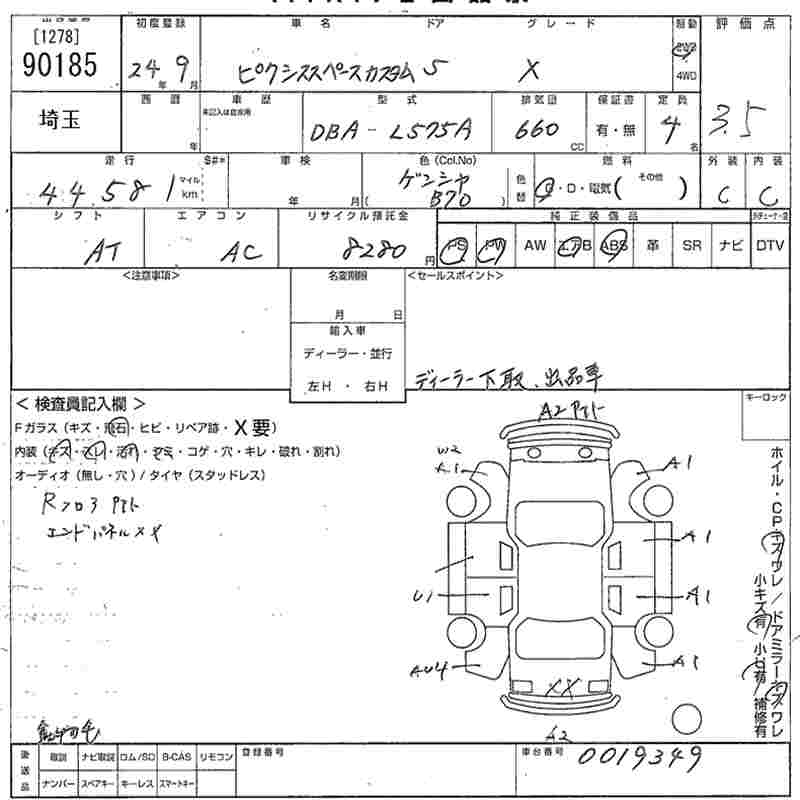 [1278]
90185
初度登録 車名 ドア グレード 駆動 評価点
24年 9月 ピクシススペースカスタム 5 X 2WD 4WD 3.5
埼玉
西暦 車歴 型式 排気量 保証書 定員
年 未記入は自家用 DBA-L575A 660 cc 有・無 4名
走行 S#* 車検 色 (Col.No) 燃料 外装 内装
44581 マイル km 年 月 ( ゲンシャ B70 ) 色替 G・D・電気( その他 ) C C
シフト エアコン リサイクル預託金 純正装備品
AT AC 8280円 PS PW AW エアB ABS 革 SR ナビ DTV
<注意事項> 名変期限 <セールスポイント>
月 日
輸入車
ディーラー・並行
左H ・ 右H
ディーラー下取、出品車
< 検査員記入欄 > キーロック
Fガラス (キズ・飛石・ヒビ・リペア跡・X要)
内装 (キズ・スレ・汚れ・シミ・コゲ・穴・キレ・破れ・割れ)
オーディオ (無し・穴) / タイヤ (スタッドレス)
Rフロア アト
エンドパネルXX
A2 アト
W2
A1 A1
A1
U1 A1
AU4 A1
XX
A2
ホイル・CPキズワレ / ドアミラーキズワレ
小キズ有 小凹有 補修有
後送品 取説 ナビ取説 ロム/SD B-CAS リモコン 登録番号 車台番号
ナンバー スペアキー キーレス スマートキー 0019349